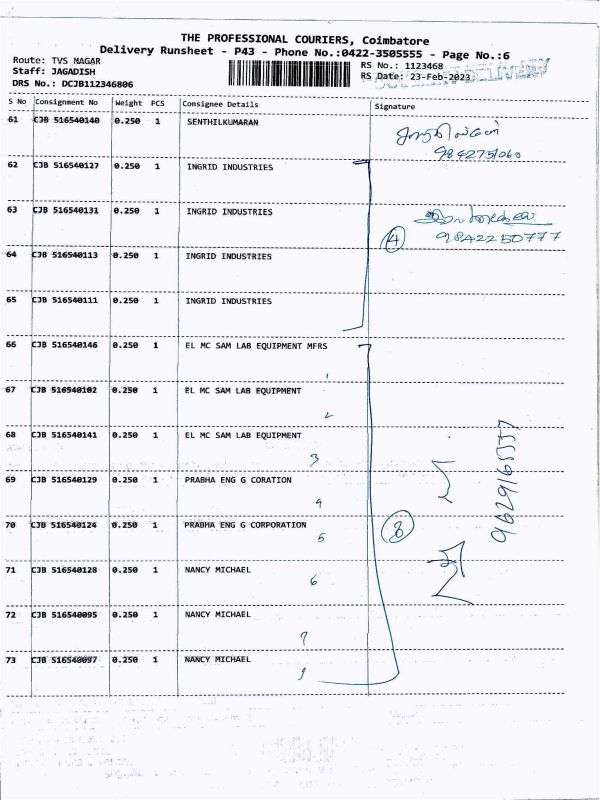 THE PROFESSIONAL COURIERS, Coimbatore
Delivery Runsheet - P43 - Phone No.:0422-3505555 - Page No.:6
Route: TVS NAGAR
Staff: JAGADISH
DRS No.: DCJB112346806
RS No.: 1123468
RS Date: 23-Feb-2023
DELIVERY
S No Consignment No Weight PCS Consignee Details Signature
61 CJB 516540140 0.250 1 SENTHILKUMARAN
9842751060
62 CJB 516540127 0.250 1 INGRID INDUSTRIES
63 CJB 516540131 0.250 1 INGRID INDUSTRIES
4 9842250777
64 CJB 516540113 0.250 1 INGRID INDUSTRIES
65 CJB 516540111 0.250 1 INGRID INDUSTRIES
66 CJB 516540146 0.250 1 EL MC SAM LAB EQUIPMENT MFRS
1
67 CJB 516540102 0.250 1 EL MC SAM LAB EQUIPMENT
2
68 CJB 516540141 0.250 1 EL MC SAM LAB EQUIPMENT
3
69 CJB 516540129 0.250 1 PRABHA ENG G CORATION
4
70 CJB 516540124 0.250 1 PRABHA ENG G CORPORATION
5 8
71 CJB 516540128 0.250 1 NANCY MICHAEL
6
72 CJB 516540095 0.250 1 NANCY MICHAEL
7
73 CJB 516540097 0.250 1 NANCY MICHAEL